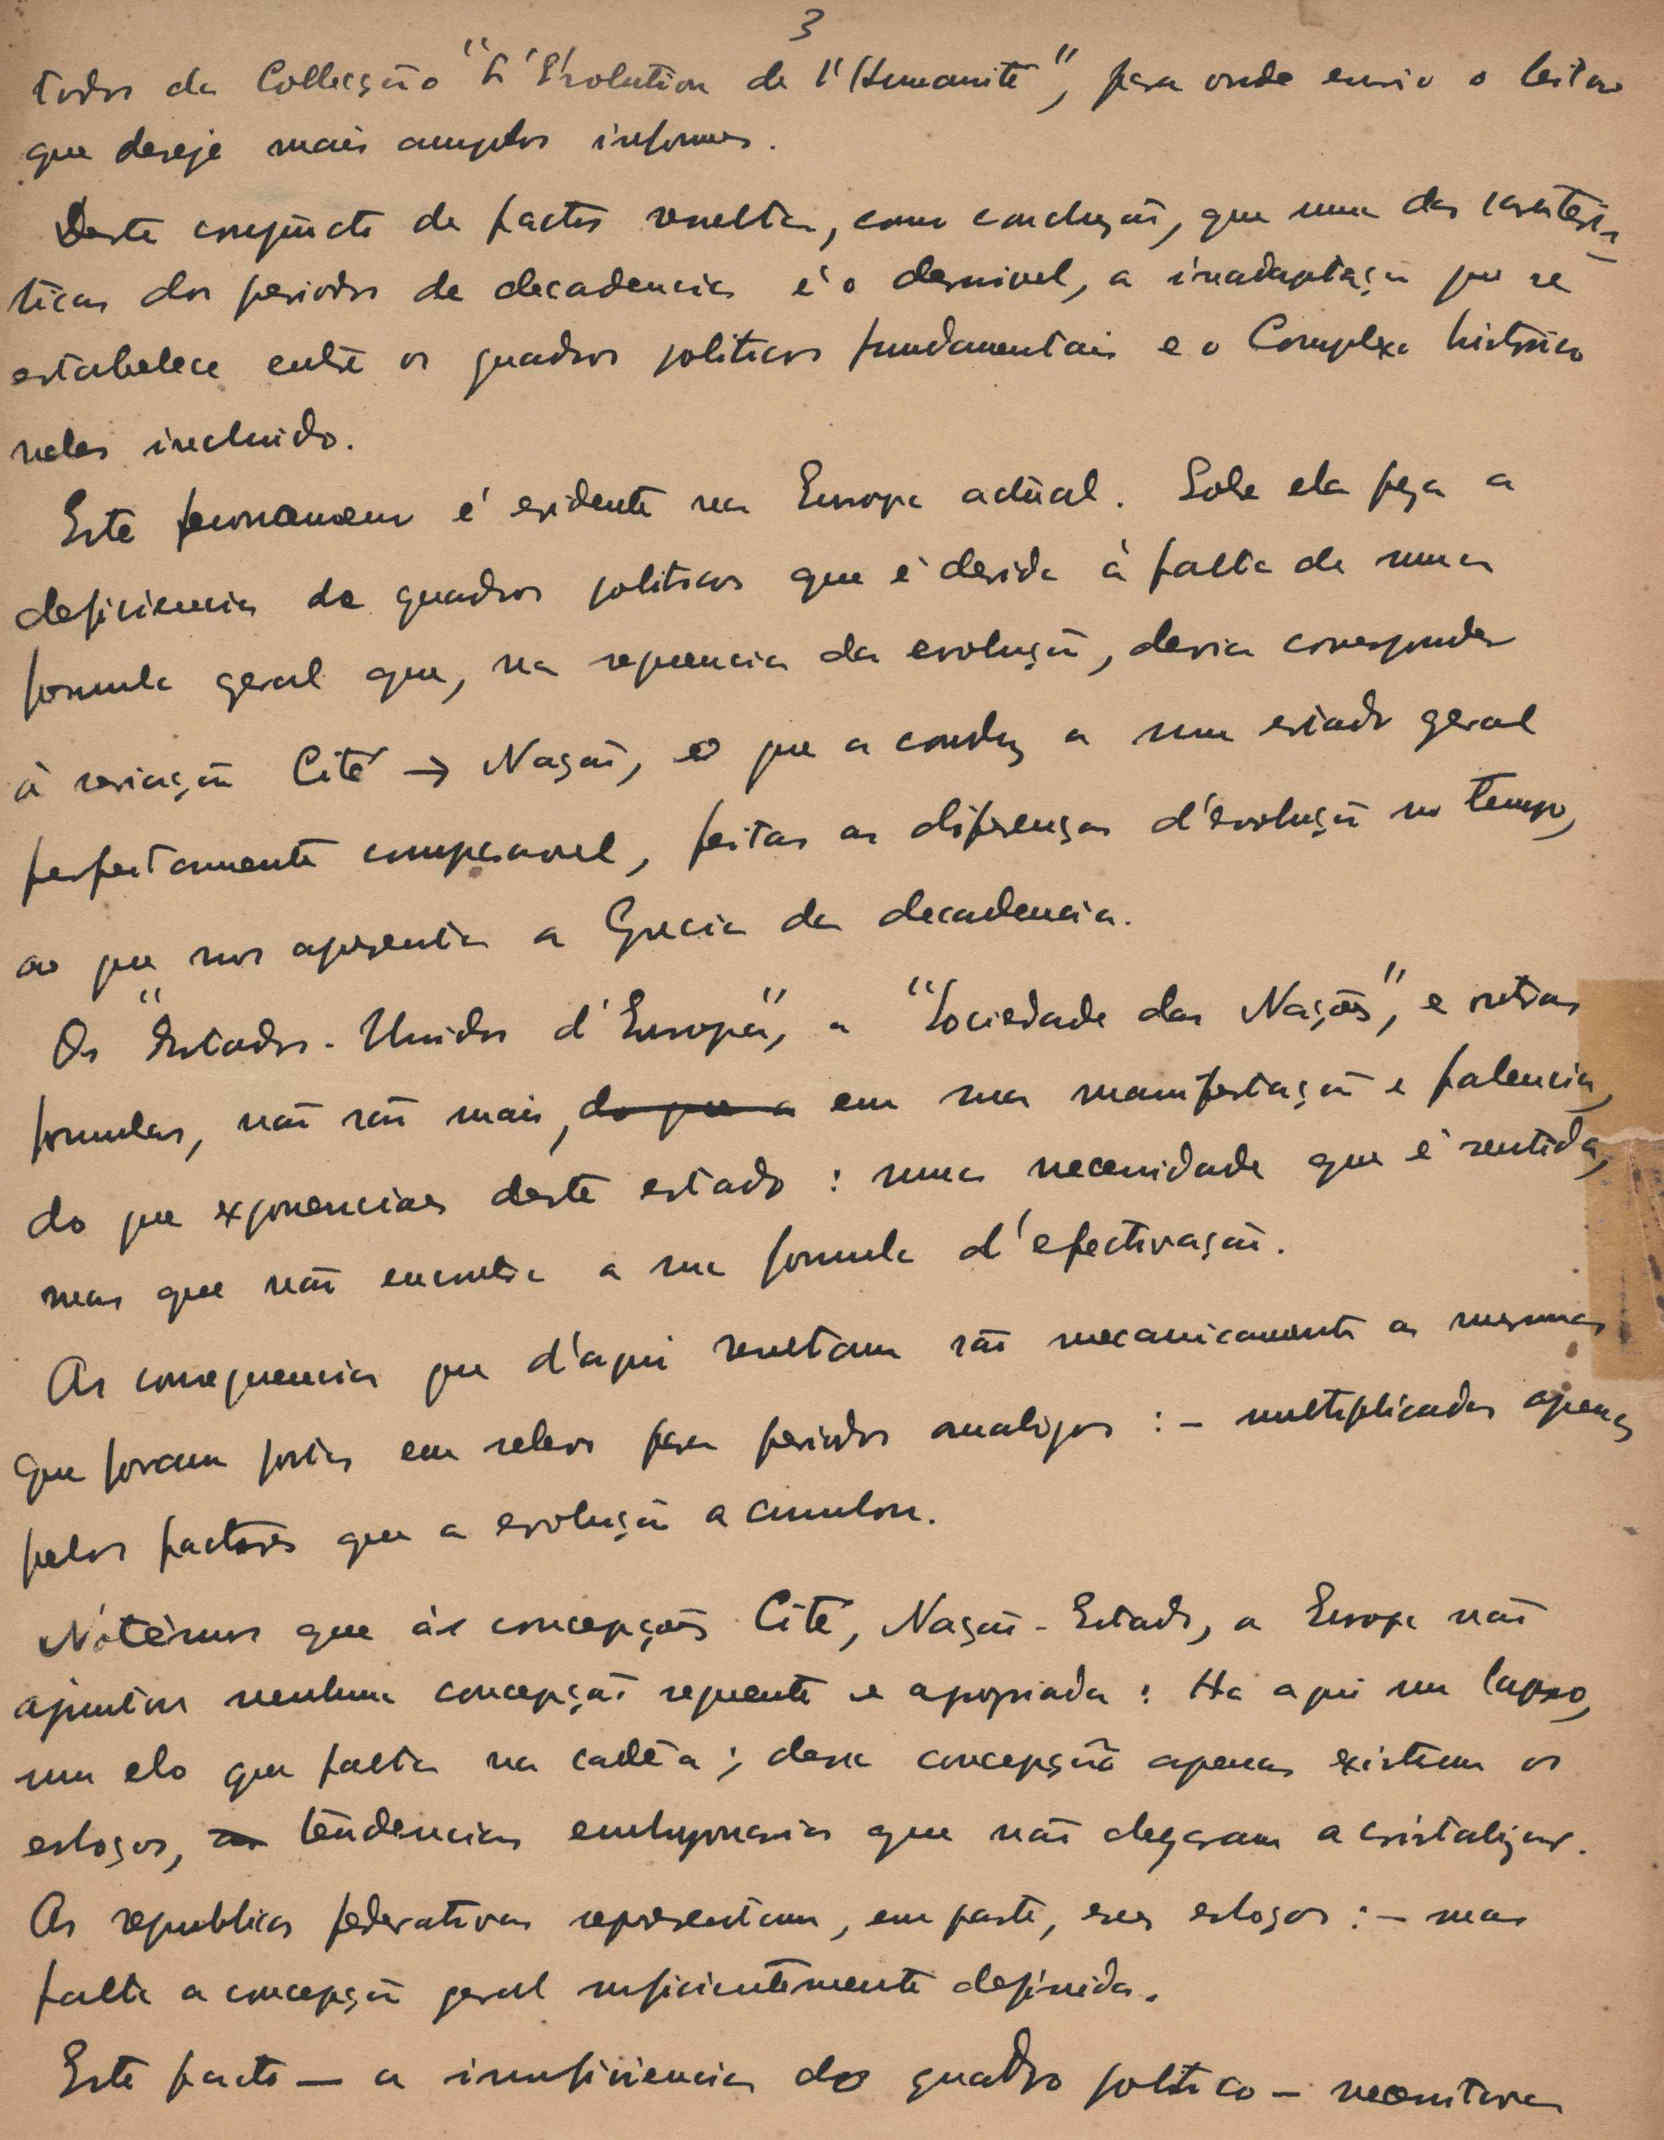 3
todos da Collecção "L'Évolution de l'Humanité", para onde envio o leitor
que deseje mais amplos informes.
Deste conjuncto de factos resulta, como conclusão, que uma das caracterís-
ticas dos periodos de decadencia é o desnivel, a inadaptação que se
estabelece entre os quadros politicos fundamentais e o Complexo histórico
neles incluido.
Este fenomeno é evidente na Europa actual. Sobre ela pesa a
deficiencia de quadros politicos que é devida à falta de uma
formula geral que, na sequencia da evolução, devia corresponder
à variação Cité → Nação, e que a conduz a um estado geral
perfeitamente comparavel, feitas as diferenças d'evolução no tempo,
ao que nos apresenta a Grecia da decadencia.
Os "Estados-Unidos d'Europa", a "Sociedade das Nações", e outras
formulas, não são mais, do que a em sua manifestação e falencia,
do que exponenciaes deste estado: uma necessidade que é sentida,
mas que não encontra a sua formula d'efectivação.
As consequencias que d'aqui resultam são mecanicamente as mesmas
que foram postas em relevo para periodos analogos: - multiplicadas apenas
pelos factores que a evolução acumulou.
Nótèmos que ás concepções Cité, Nação-Estado, a Europa não
ajuntou nenhuma concepção sequente e apropiada: Ha aqui um lapso,
um elo que falta na cadêa; dessa concepção apenas existem os
esboços, as tendencias embryonarias que não chegaram a cristalizar.
As republicas federativas representam, em parte, esses esboços: - mas
falta a concepção geral suficientemente definida.
Este facto — a insuficiencia do quadro politico — necessitava